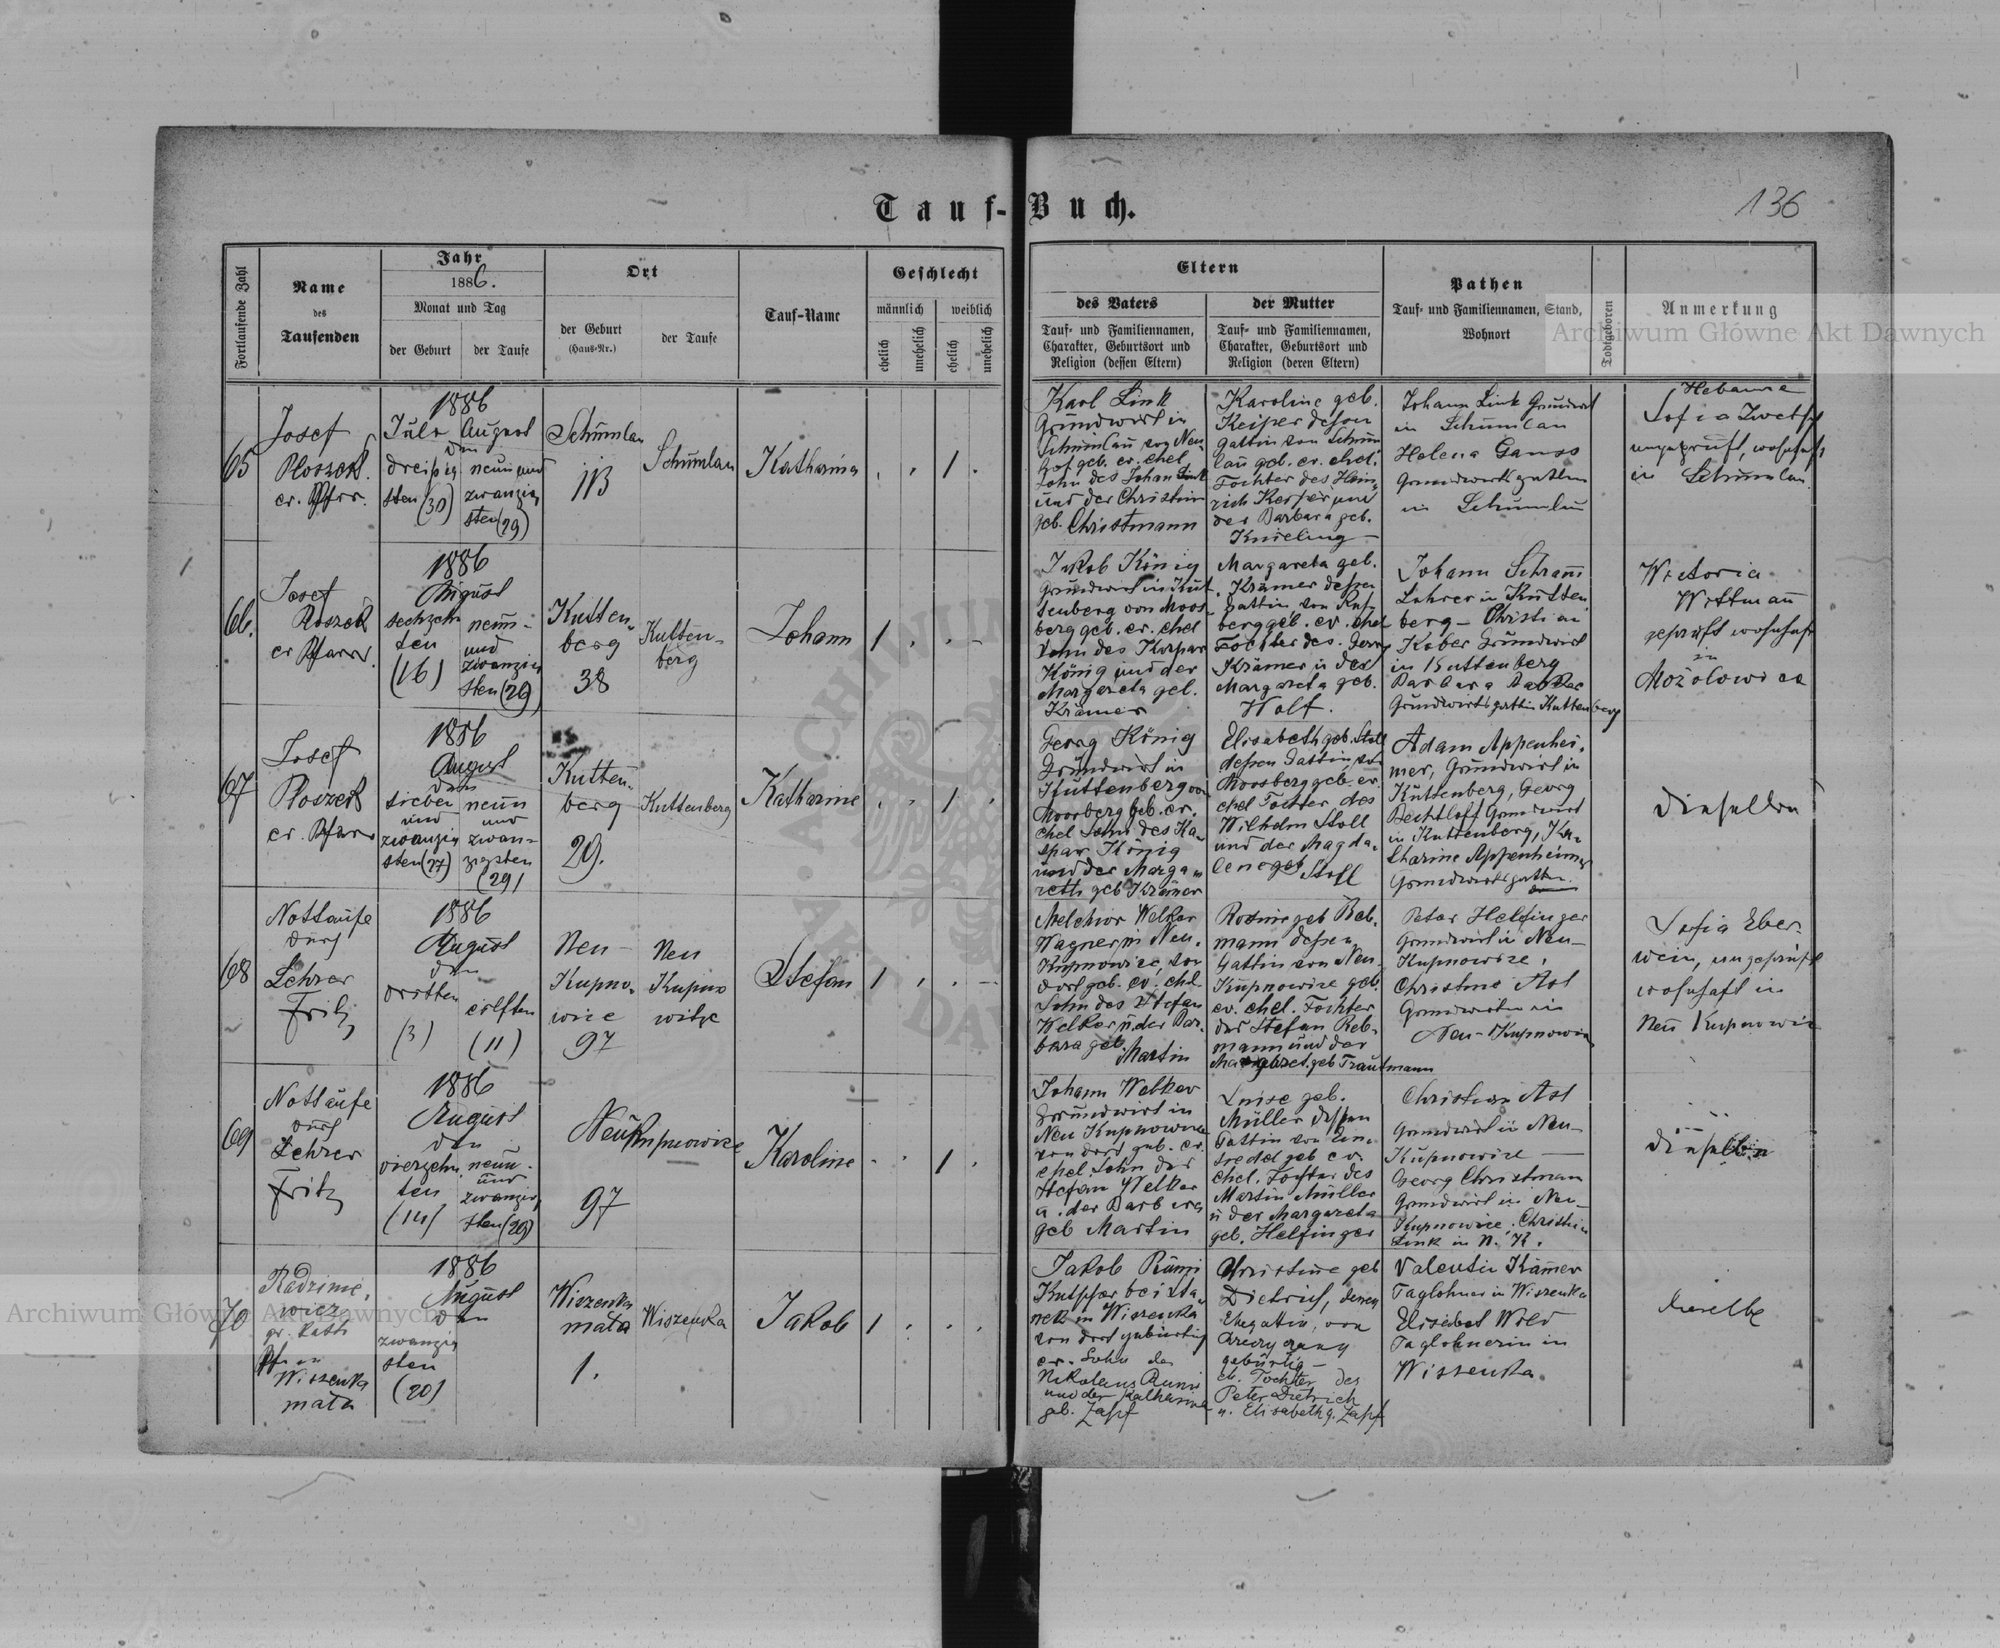 Tauf-Buch.
136
Fortlaufende Zahl
Name
des
Taufenden
Jahr
1886.
Monat und Tag
der Geburt
der Taufe
Ort
der Geburt
(Haus-Nr.)
der Taufe
Tauf-Name
Geschlecht
männlich
weiblich
ehelich
unehelich
ehelich
unehelich
Eltern
des Vaters
Tauf- und Familiennamen,
Charakter, Geburtsort und
Religion (dessen Eltern)
der Mutter
Tauf- und Familiennamen,
Charakter, Geburtsort und
Religion (deren Eltern)
Pathen
Tauf- und Familiennamen, Stand,
Wohnort
Todtgeboren
Anmerkung
Archiwum Główne Akt Dawnych
65
Josef
Ploszek
ev. Pfrr.
1886
Juli
dreißig
sten (30)
August
den
neunund
zwanzig
sten (29)
Schumlau
113
Schumlau
Katharina
1
Karl Link
Grundwirt in
Schumlau von Neu
hof geb. ev. ehel.
Sohn des Johan Link
und der Christin
geb. Christmann
Karoline geb.
Keiper dessen
Gattin von Schum
lau geb. ev. ehel.
Tochter des Hein
rich Keiper und
der Barbara geb.
Knieling
Johann Link Grundwirt
in Schumlau
Helena Ganso
Grundwirtsgattin
in Schumlau
Hebamme
Sofia
ungeprüft, wohnhaft
in Schumlau
66.
Josef
Ploszek
ev Pfarr.
1886
August
sechzehn
ten
(16)
neun-
und
zwanzig
sten (29)
Kutten-
berg
38
Kutten-
berg
Johann
1
Jakob König
Grundwirt in Kut
tenberg von Moos
berg geb. ev. ehel
Sohn des Kaspar
König und der
Margareta geb.
Krämer
Margareta geb.
Krämer dessen
Gattin von
berg geb. ev. ehel
Tochter des Georg
Krämer u der
Margareta geb.
Wolf.
Johann Schram
Lehrer in Kutten
berg - Christian
Kober Grundwirt
in Kuttenberg
Barbara
Grundwirtsgattin Kuttenberg
Wictoria
Wittmann
geprüft wohnhaft
in
Mozolowice
67
Josef
Ploszek
ev. Pfarr
1886
August
den
sieben
und
zwanzig
sten (27)
neun
und
zwan-
zigsten
(29)
Kutten-
berg
29.
Kuttenberg
Katharine
1
Georg König
Grundwirt in
Kuttenberg von
Moosberg geb. ev.
ehel Sohn des Ka-
spar König
und der Marga
reth geb Krämer
Elisabeth geb. Stoll
dessen Gattin von
Moosberg geb. ev.
ehel Tochter des
Wilhelm Stoll
und der Magda-
lene geb Stoll
Adam Appenhei-
mer, Grundwirt in
Kuttenberg, Georg
Bechtloff Grundwirt
in Kuttenberg, Ka-
tharine Appenheimer
Grundwirtsgattin
dieselbe
68
Nottaufe
durch
Lehrer
Fritz
1886
August
den
dritten
(3)
eilften
(11)
Neu-
Kupno-
wice
97
Neu
Kupno
witze
Stefan
1
Melchior Welker
Wagner in Neu-
Kupnowice, von
dort geb. ev. ehel.
Sohn des Stefan
Welker u. der Bar-
bara geb. Martin
Rosine geb Reb-
mann dessen
Gattin von Neu-
Kupnowice geb.
ev. ehel. Tochter
des Stefan Reb-
mann und der
Margaret. geb Trautmann
Peter Helfinger
Grundwirt in Neu-
Kupnowice,
Christine Ast
Grundwirtin in
Neu-Kupnowice
Sofia Eber-
wein, ungeprüft
wohnhaft in
Neu Kupnowice
69
Nottaufe
durch
Lehrer
Fritz
1886
August
den
vierzehn
ten
(14)
neun-
und
zwanzig
sten (29)
Neu Kupnowice
97
Karoline
1
Johann Welker
Grundwirt in
Neu Kupnowice
von dort geb. ev.
ehel. Sohn des
Stefan Welker
u. der Barbara
geb Martin
Luise geb.
Müller dessen
Gattin von Ein-
siedel geb ev.
ehel. Tochter des
Martin Müller
u der Margareta
geb. Helfinger
Christian Ast
Grundwirt in Neu-
Kupnowice
Georg Christman
Grundwirt in Neu-
Kupnowice, Christin
Link in N. K.
dieselbe
70
Radzimie-
wicz
gr. kath
Pfr in
Wiszenka
mała
1886
August
den
zwanzig
sten
(20)
Wiszenka
mała
1.
Wiszenka
Jakob
1
Jakob Rumi
in Wiszenka
von dort gebürtig
ev. Sohn des
Nikolaus Rumi
und der Katharina
geb. Zapf
Christine geb
Dietrich, dessen
Ehegattin, von
gebürtig -
eh. Tochter des
Peter Dietrich
u. Elisabeth g. Zapf
Valentin Kämer
Taglöhner in Wiszenka
Elisabet Wild
Taglöhnerin in
Wiszenka
dieselbe
Archiwum Główne Akt Dawnych